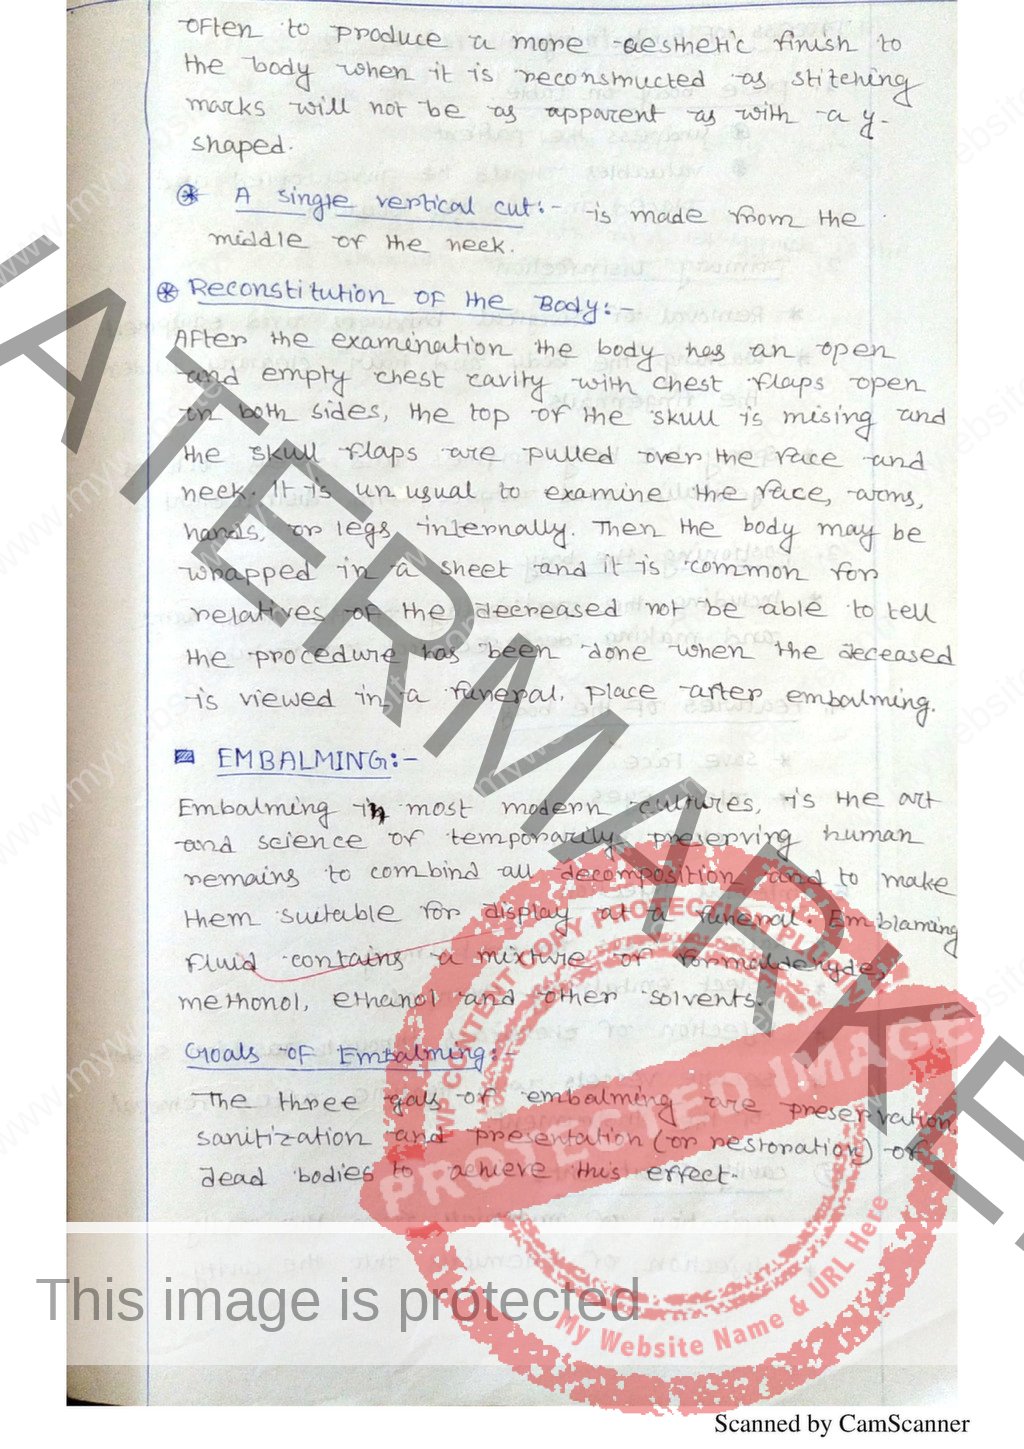 often to produce a more aesthetic finish to
the body when it is reconstructed as stitching
marks will not be as apparent as with a y-
shaped.
A single vertical cut:- is made from the
middle of the neck.
Reconstitution of the Body:-
After the examination the body has an open
and empty chest cavity with chest flaps open
on both sides, the top of the skull is mising and
the skull flaps are pulled over the face and
neck. It is un usual to examine the face, arms,
hands, or legs internally. Then the body may be
wrapped in a sheet and it is common for
relatives of the decreased not be able to tell
the procedure has been done when the deceased
is viewed in a funeral. place after embalming.
EMBALMING:-
Embalming in most modern cultures, is the art
and science of temporarily preserving human
remains to combind all decomposition and to make
them suetable for display at a funeral. Emblaming
fluid contains a mixture of formaldengdes,
methonol, ethanol and other solvents.
Goals of Embalming:-
The three gals of embalming are preservation,
sanitization and presentation (or restoration) of
dead bodies to acheive this effect.
WATERMARKED
WP CONTENT COPY PROTECTION PLUGIN
PROTECTED IMAGE
My Website Name & URL Here
This image is protected
Scanned by CamScanner